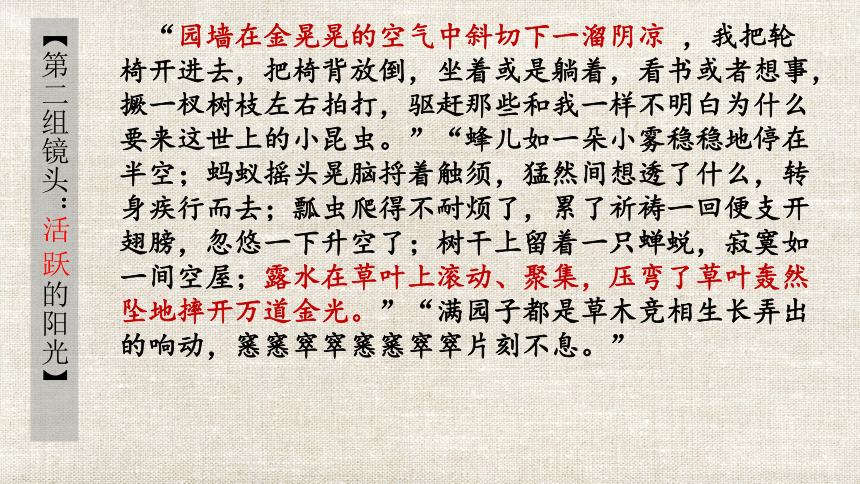 【第二组镜头：活跃的阳光】
“园墙在金晃晃的空气中斜切下一溜阴凉 ，我把轮
椅开进去，把椅背放倒，坐着或是躺着，看书或者想事，
撅一杈树枝左右拍打，驱赶那些和我一样不明白为什么
要来这世上的小昆虫。”“蜂儿如一朵小雾稳稳地停在
半空；蚂蚁摇头晃脑捋着触须，猛然间想透了什么，转
身疾行而去；瓢虫爬得不耐烦了，累了祈祷一回便支开
翅膀，忽悠一下升空了；树干上留着一只蝉蜕，寂寞如
一间空屋；露水在草叶上滚动、聚集，压弯了草叶轰然
坠地摔开万道金光。”“满园子都是草木竞相生长弄出
的响动，窸窸窣窣窸窸窣窣片刻不息。”